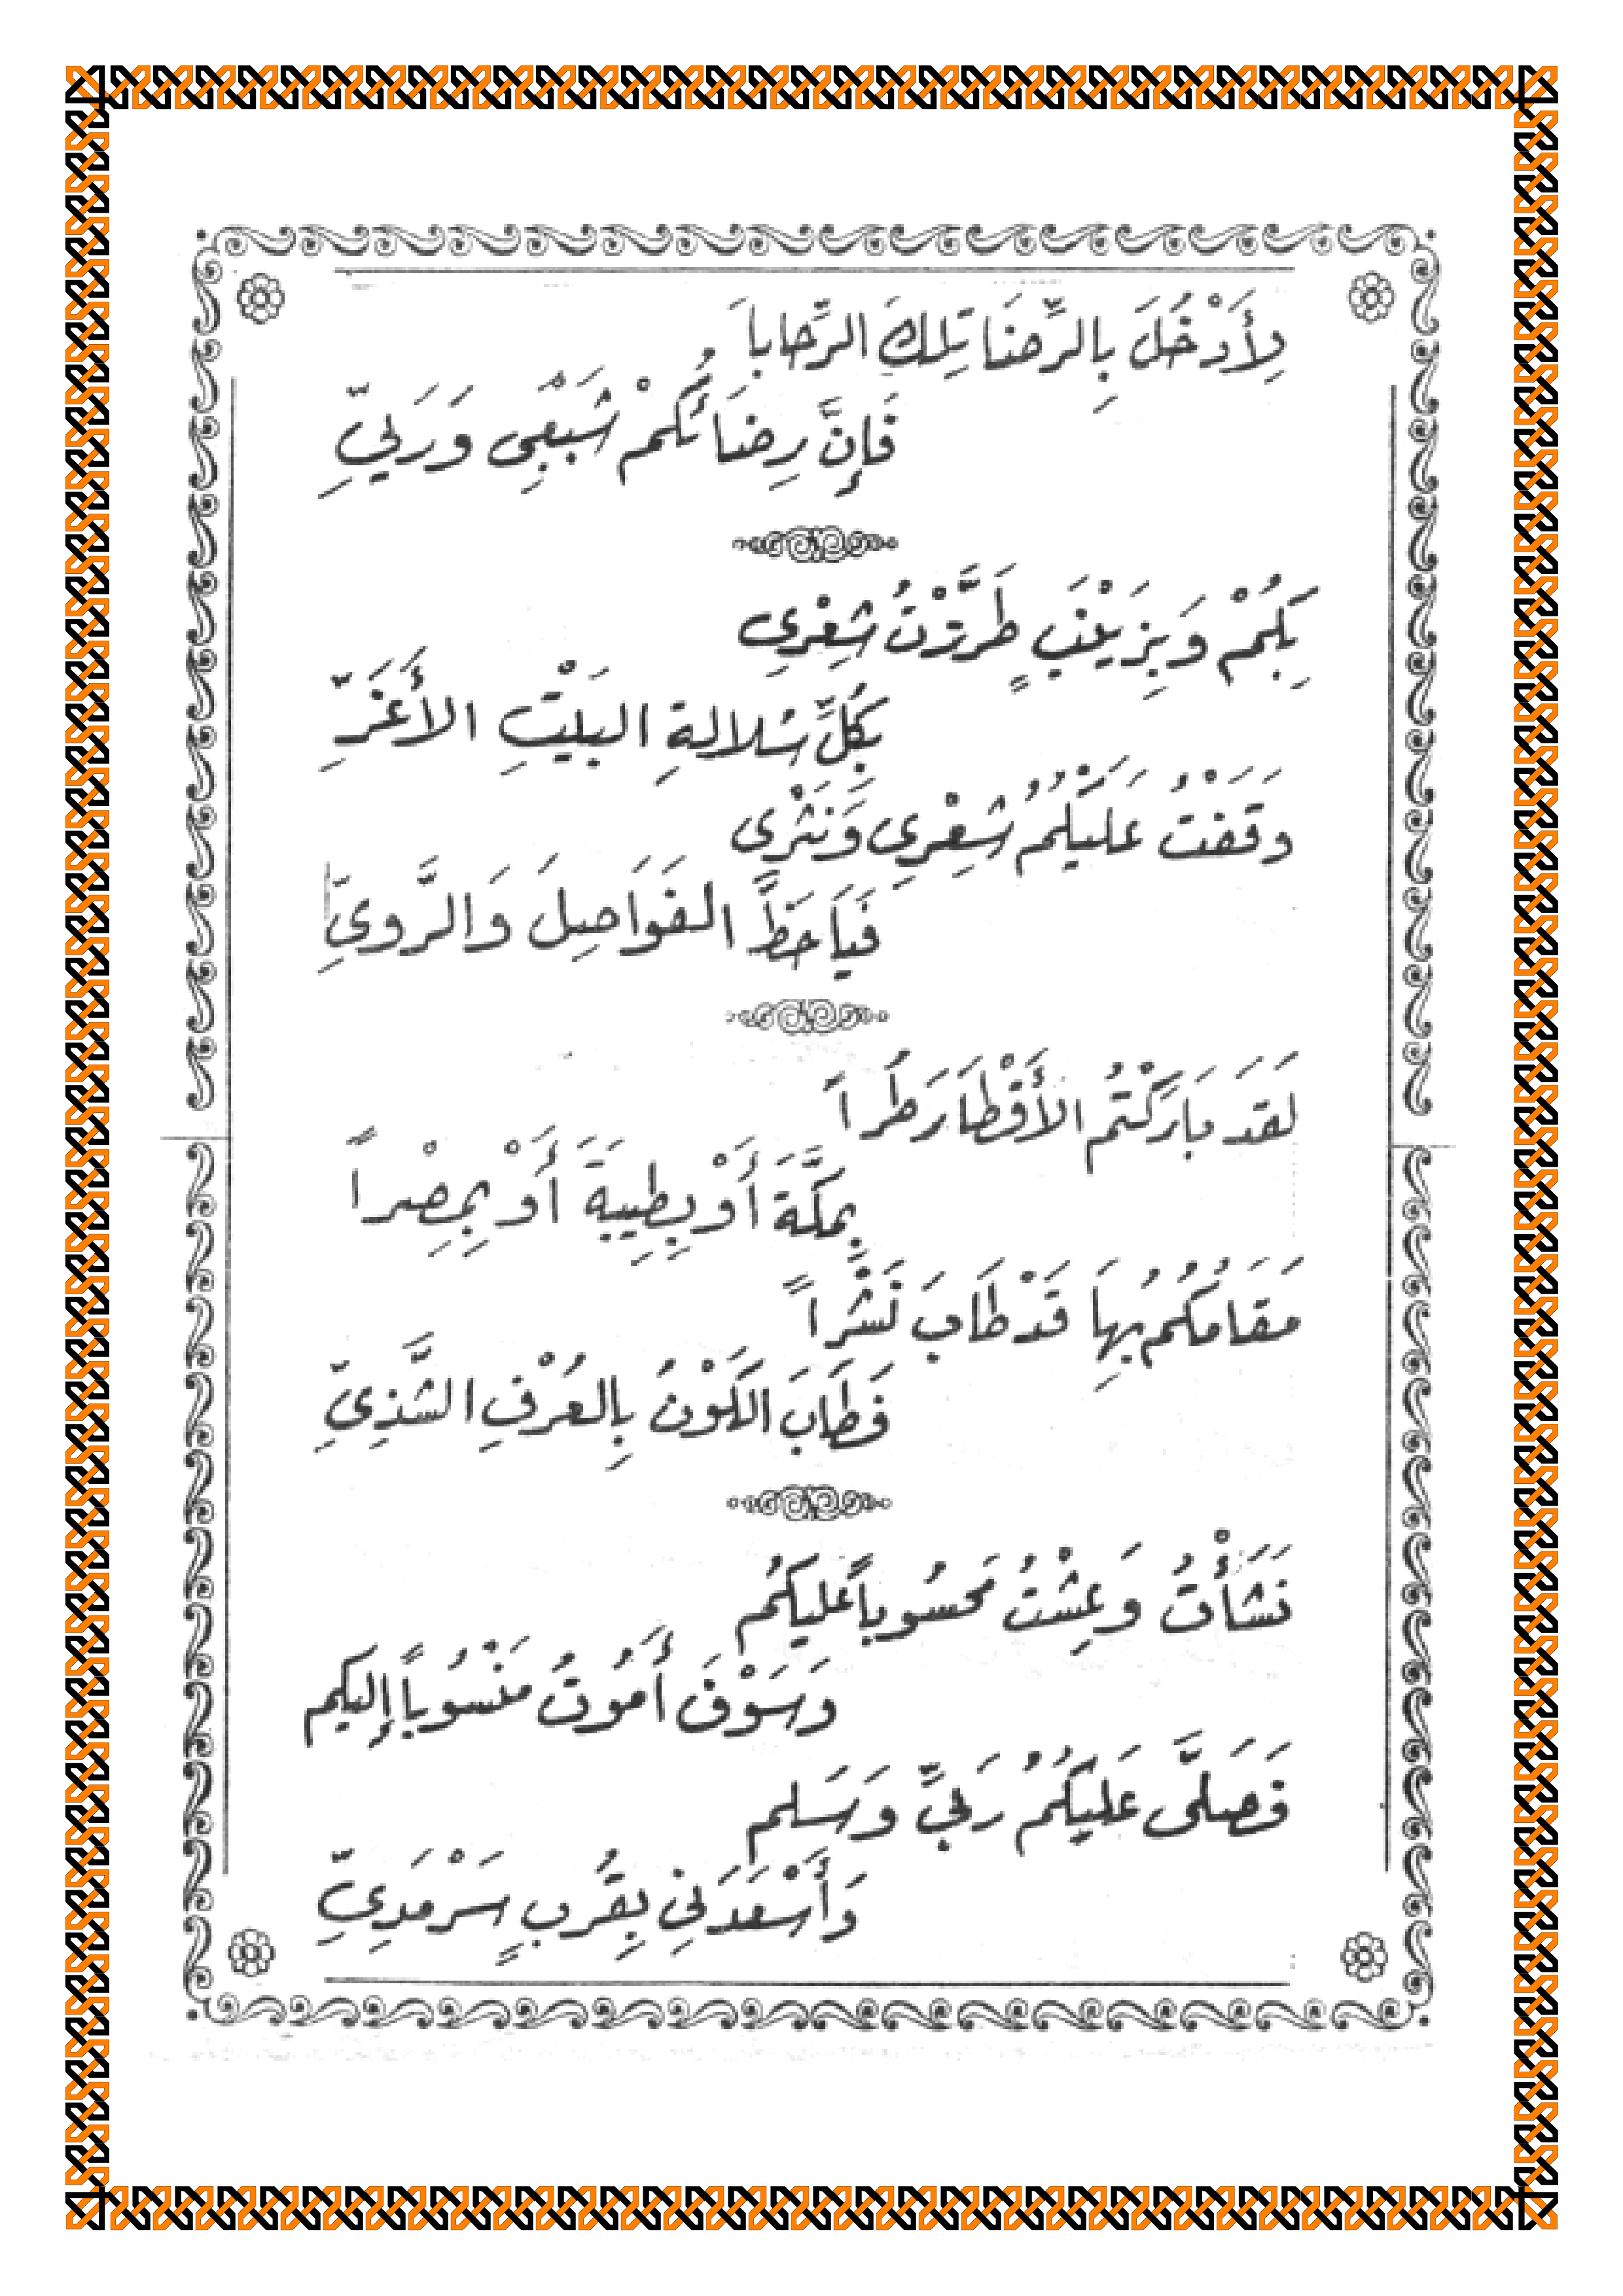 لِأَدْخُلَ بِالرِّضَا تِلكَ الرِّحابا
فَإِنَّ رِضَائكُمْ شَبْعِى وَرَيِيّ
بِكُمْ وَبِزَيْنَبٍ طَرَّزْتُ شِعْرِي
بِكُلِّ سُلالةِ البَيْتِ الأَغَرِّ
وَقَفْتُ عَلَيْكُمُ شِعْرِي وَنَثْرِي
فَيَا حَظَّ الفَوَاصِلَ وَالرَّوِيِّ
لَقَد بَارَكْتُم الأَقْطَارَ طُراً
بِمكَّةَ أَوْ بِطِيبَةَ أَوْ بِمِصْراً
مَقَامُكُمُ بِهَا قَدْ طَابَ نَشْراً
فَطَابَ الكَوْنُ بِالعُرْفِ الشَّذِيِّ
نَشَأْتُ وَعِشْتُ مَحسُوباً عَليكُم
وَسَوْفَ أَمُوتُ مَنْسُوباً إليكم
فَصَلَّى عَليكُمُ رَبيِّ وَسَلم
وَأَسْعَدَنِي بِقُربٍ سَرْمَدِيِّ